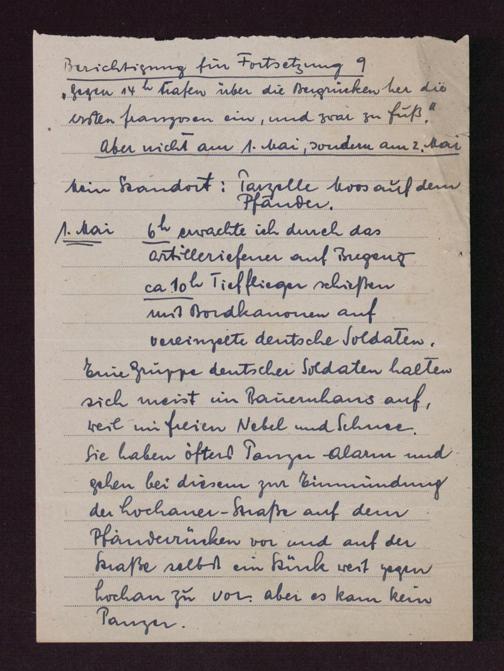 Berichtigung für Fortsetzung 9
"Gegen 14h trafen über die Bergrücken her die
ersten Franzosen ein, und zwar zu Fuß."
Aber nicht am 1. Mai, sondern am 2. Mai
Mein Standort: Parzelle Moos auf dem
Pfänder.
1. Mai 6h erwachte ich durch das
Artilleriefeuer auf Bregenz
ca 10h Tiefflieger schießen
mit Bordkanonen auf
vereinzelte deutsche Soldaten.
Eine Gruppe deutscher Soldaten halten
sich meist im Bauernhaus auf,
weil im freien Nebel und Schnee.
Sie haben öfters Panzer-Alarm und
gehen bei diesem zur Einmündung
der Lochauer-Straße auf dem
Pfänderrücken vor und auf der
Straße selbst ein Stück weit gegen
Lochau zu vor. aber es kam kein
Panzer.